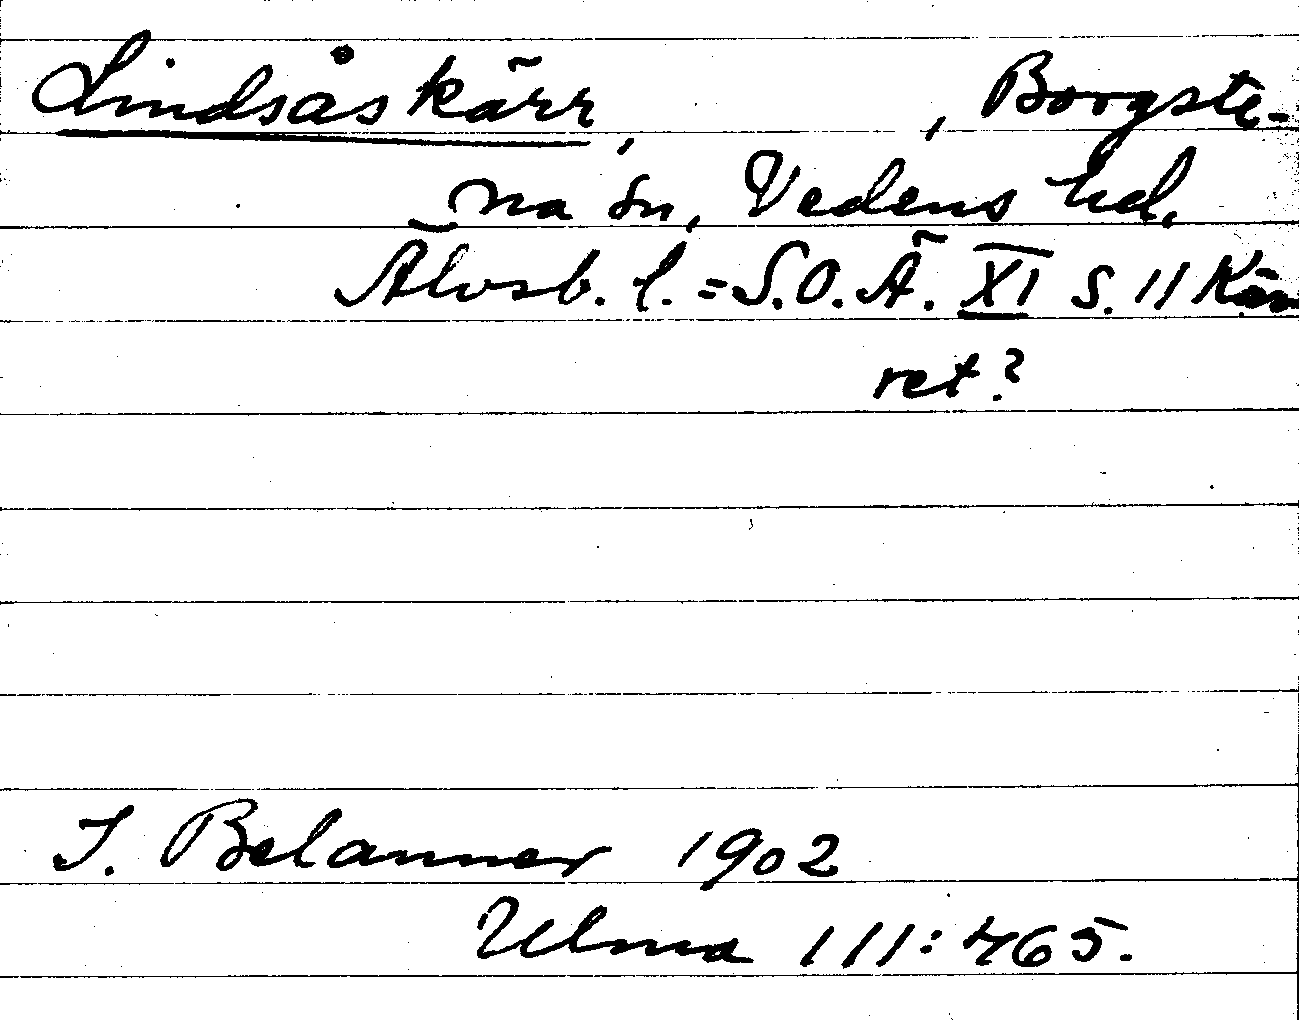 Lindsåskärr, , Borgste-
na sn, Vedens hd.
Älvsb. l. = S.O.Ä. XI s. 11 Kär
ret?
J. Belanner 1902
Ulma 111:465.